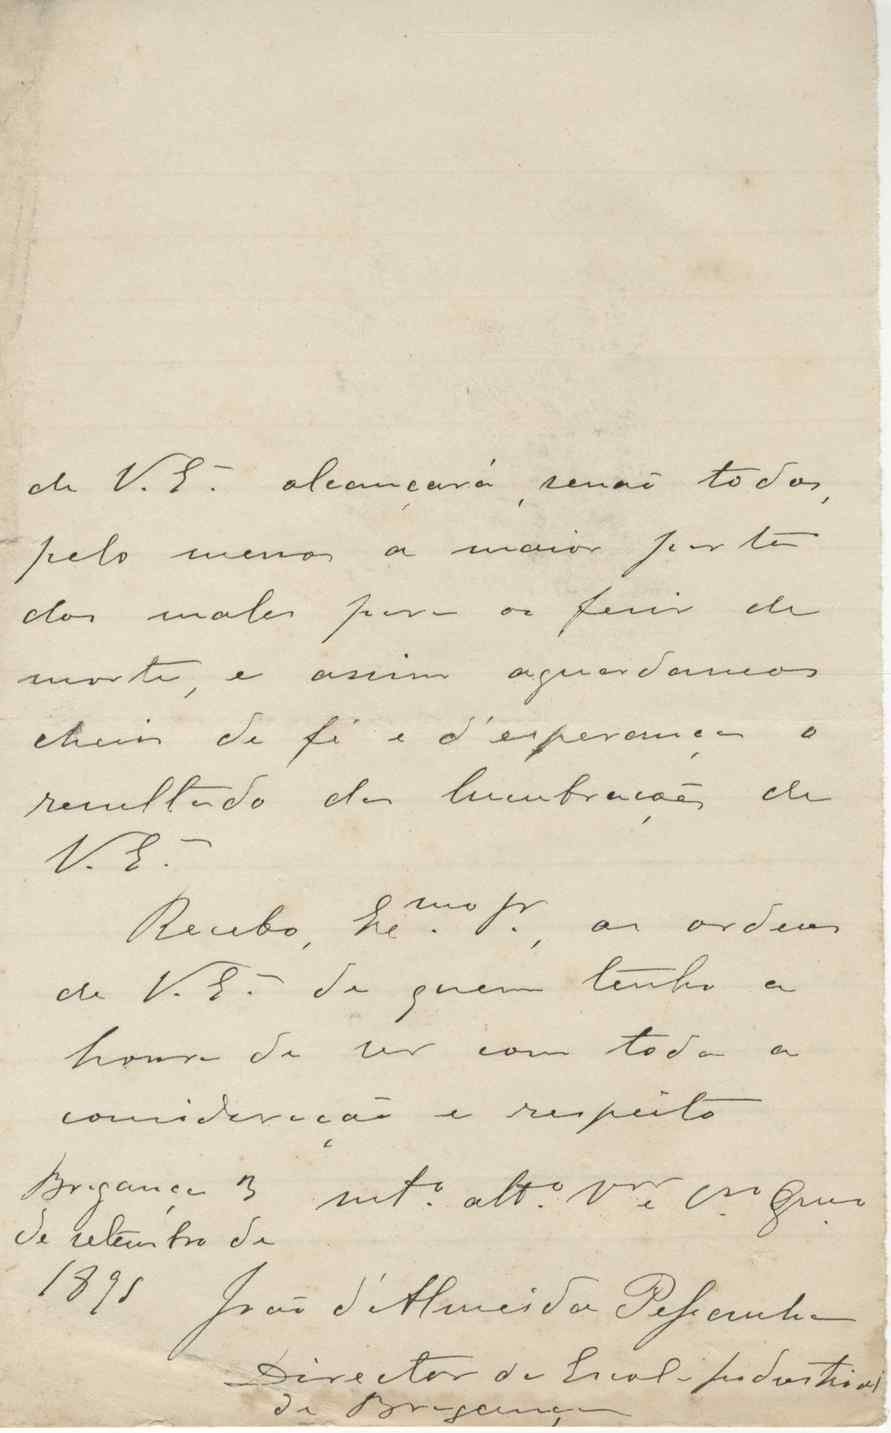 de V. Eª. alcançará, senão todos,
pelo menos a maior parte
dos males para os ferir de
morte, e assim aguardamos
cheios de fé e d'esperança o
resultado das lucubrações de
V. Eª.
Receba, Exᵐᵒ. Sr., as ordens
de V. Eª. de quem tenho a
honra de ser com toda a
consideração e respeito
Bragança 3
de setembro de
1891
mtº. attº. Vᵒʳ e Crº
João d'Almeida Pessanha
Director da Escola Industrial
de Bragança